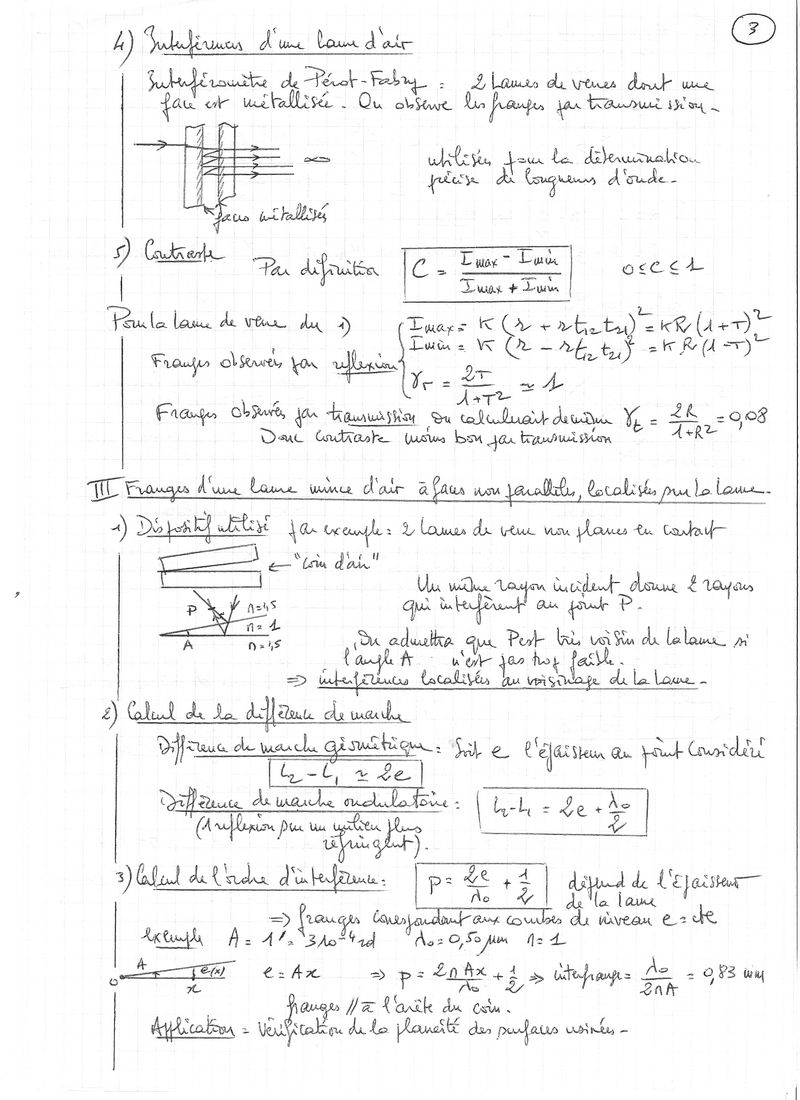 3
4) Interférences d'une lame d'air
Interféromètre de Pérot-Fabry : 2 lames de verres dont une
face est métallisée. On observe les franges par transmission.
∞
utilisées pour la détermination
précise de longueurs d'onde.
faces métallisés
5) Contraste
Par définition C = (Imax - Imin)/(Imax + Imin) 0 ≤ C ≤ 1
Pour la lame de verre du 1) Imax = K (r + r t12 t21)² = KR (1+T)²
Imin = K (r - r t12 t21)² = KR (1-T)²
Franges observés par reflexion
γr = 2T/(1+T²) ≃ 1
Franges observés par transmission on calculerait de même γt = 2R/(1+R²) = 0,08
Donc contraste moins bon par transmission
III Franges d'une lame mince d'air à faces non parallèles, localisées sur la lame.
1) Dispositif utilisé par exemple : 2 lames de verre non planes en contact
"coin d'air"
Un même rayon incident donne 2 rayons
qui interfèrent au point P.
P n=1,5
n=1
A n=1,5
On admettra que P est très voisin de la lame si
l'angle A n'est pas trop faible.
⇒ interférences localisées au voisinage de la lame.
2) Calcul de la différence de marche
Différence de marche géométrique : Soit e l'épaisseur au point considéré
L2 - L1 ≃ 2e
Différence de marche ondulatoire : L2-L1 = 2e + λ0/2
(1 reflexion sur un milieu plus
réfringent).
3) Calcul de l'ordre d'interférence : p = 2e/λ0 + 1/2 dépend de l'épaisseur
de la lame
⇒ franges correspondant aux courbes de niveau e = cte
exemple A = 1' = 3 10⁻⁴ rd λ0 = 0,50 μm n = 1
O A e(x) x e = Ax ⇒ p = 2nAx/λ0 + 1/2 ⇒ interfrange = λ0/2nA = 0,83 mm
franges // à l'arête du coin.
Application = Vérification de la planéité des surfaces usinées.